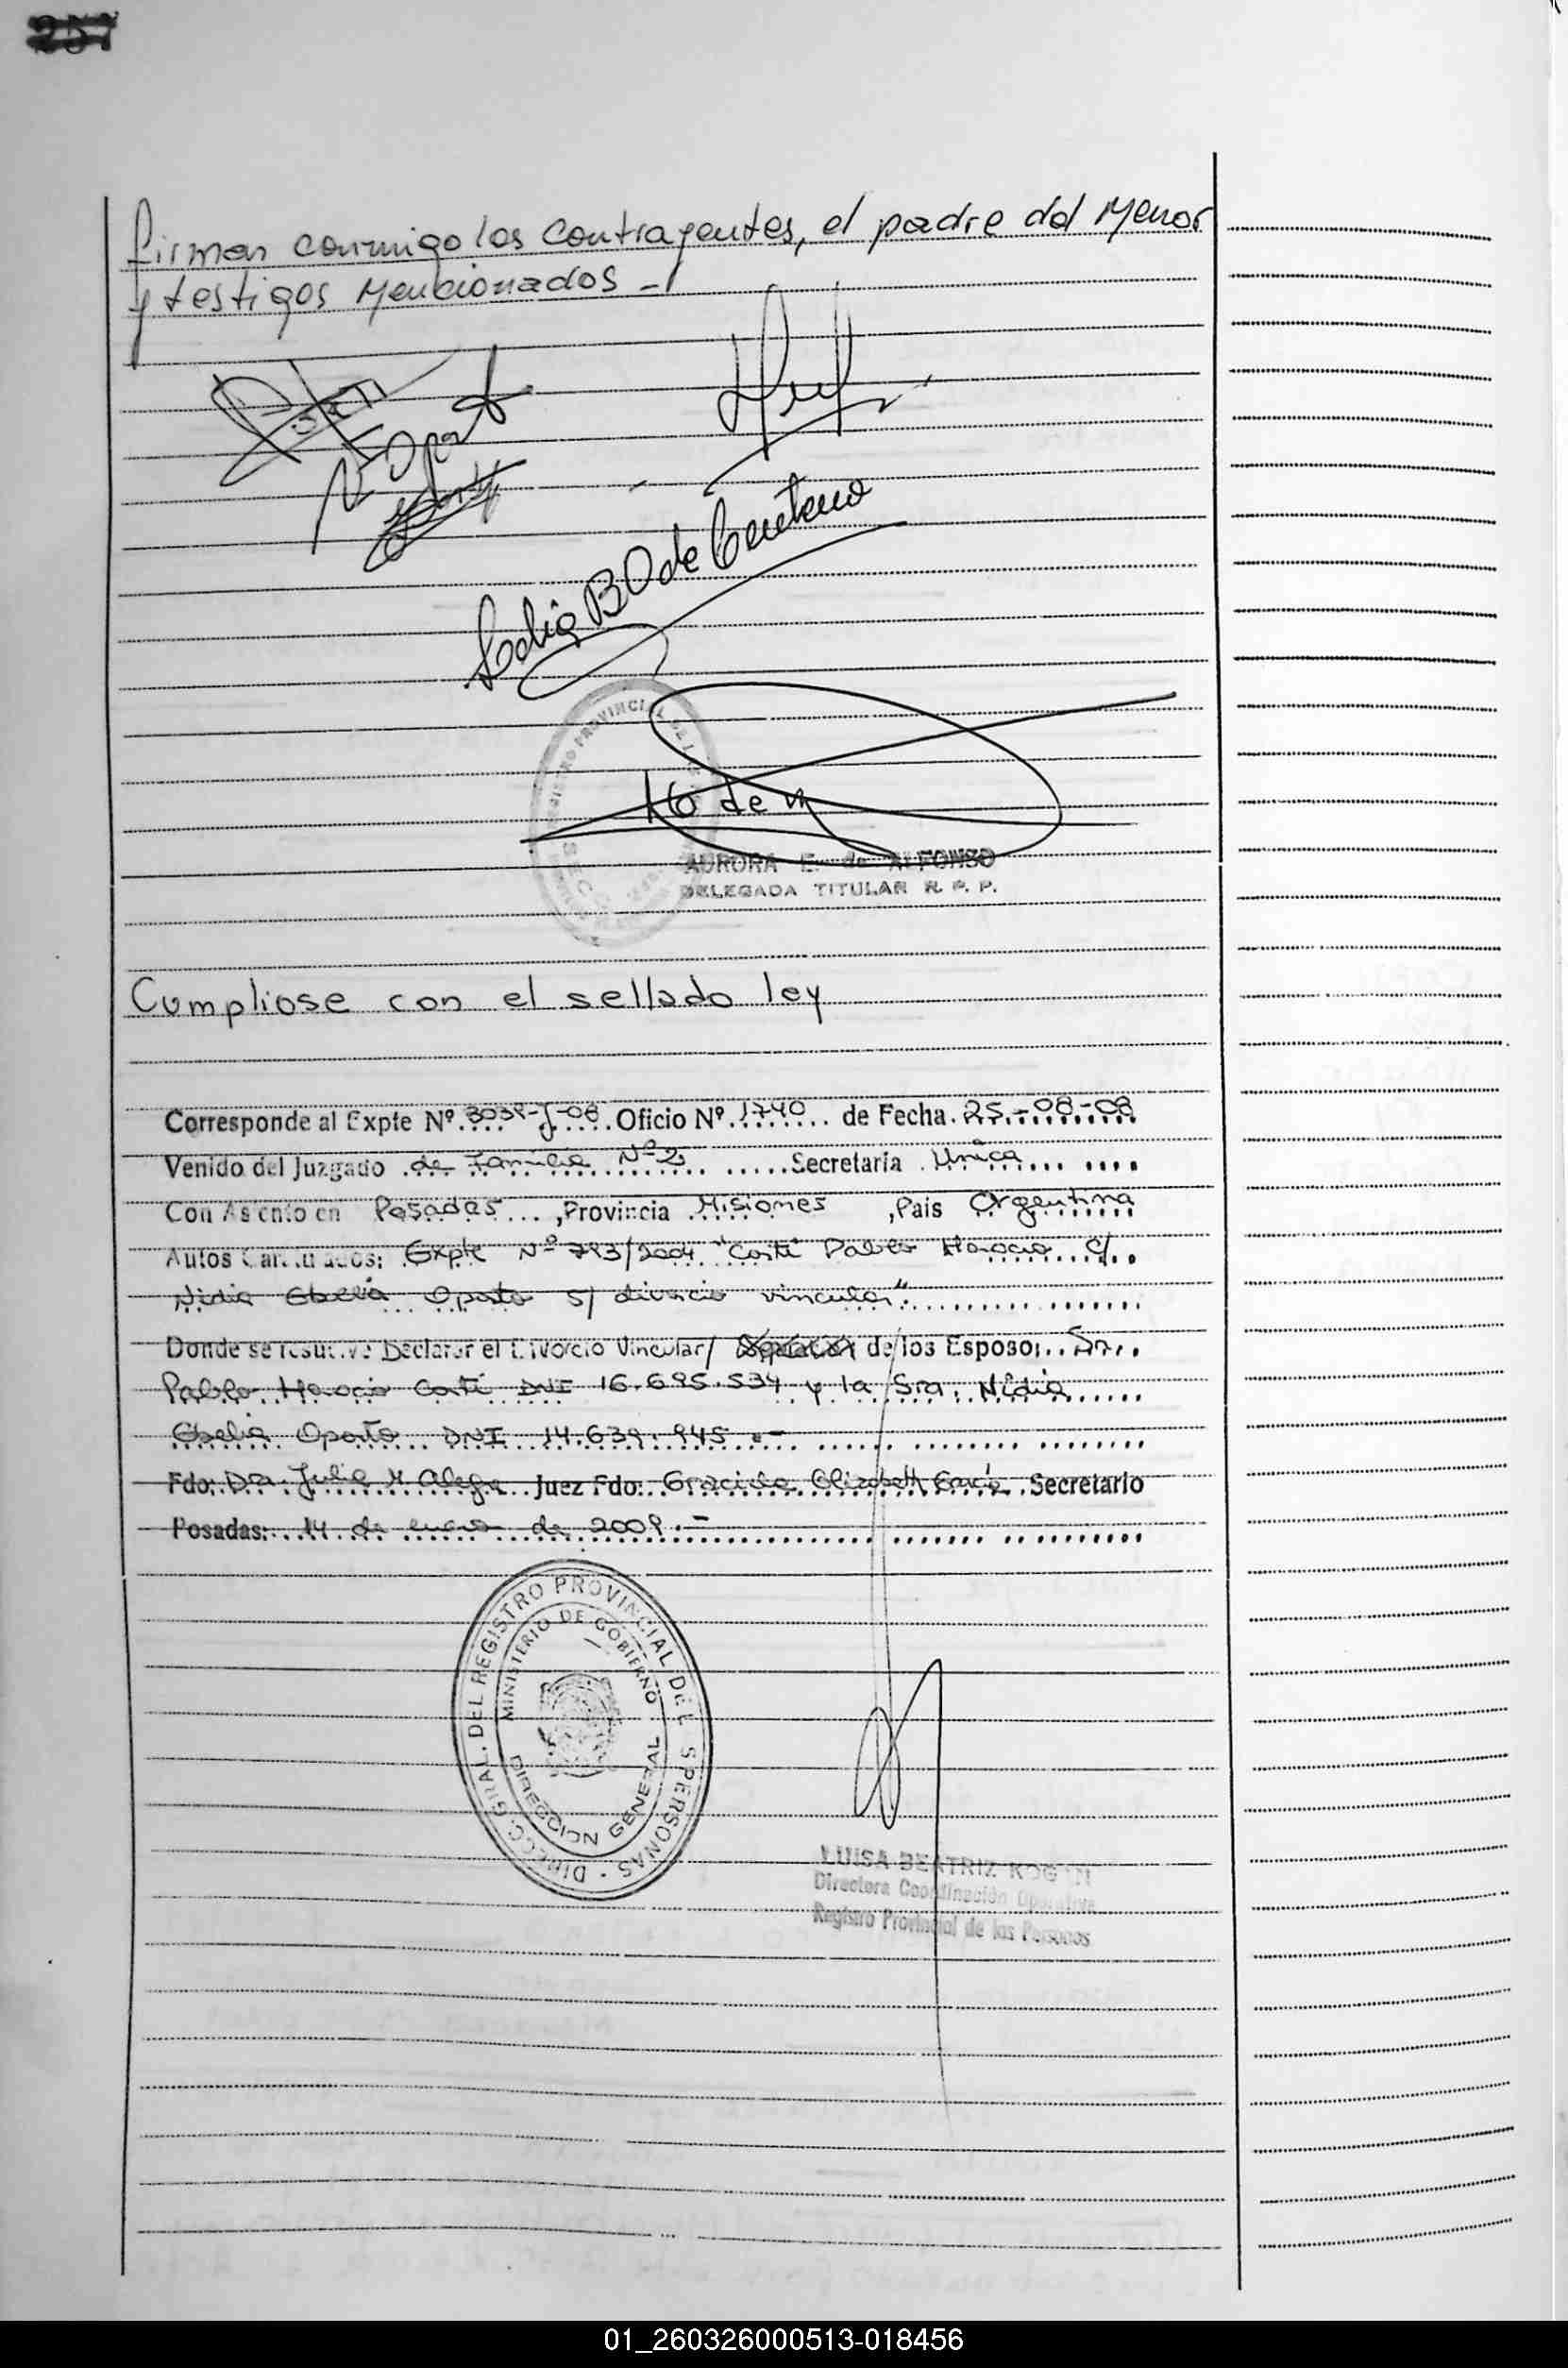 257
firman conmigo los contrayentes, el padre del menor
y testigos mencionados -
N Oporto
Lelia B O de Centeno
AURORA E. de ALFONSO
DELEGADA TITULAR R. P. P.
Cumpliose con el sellado ley
Corresponde al Expte Nº 3039-J-08 Oficio Nº 1740 de Fecha 25-08-08
Venido del Juzgado de Familia Nº 2 Secretaría Unica
Con Asiento en Posadas, Provincia Misiones, Pais Argentina
Autos Caratulados: Expte Nº 793/2004 "Conti Pablo Horacio c/
Nidia Ebelia Oporto s/ divorcio vincular"
Donde se resuelve Declarar el Divorcio Vincular/ de los Esposo: Sr.
Pablo Horacio Conti DNI 16.695.534 y la Sra. Nidia
Ebelia Oporto DNI 14.639.945.-
Fdo: Dra. Julia M Alegre Juez Fdo: Graciela Elizabeth Secretario
Posadas: 14 de enero de 2009.-
DIRECC. GRAL. DEL REGISTRO PROVINCIAL DE L S PERSONAS
MINISTERIO DE GOBIERNO
DIRECCION GENERAL
LUISA BEATRIZ KOG N
Directora Coordinación Operativa
Registro Provincial de las Personas
01_260326000513-018456